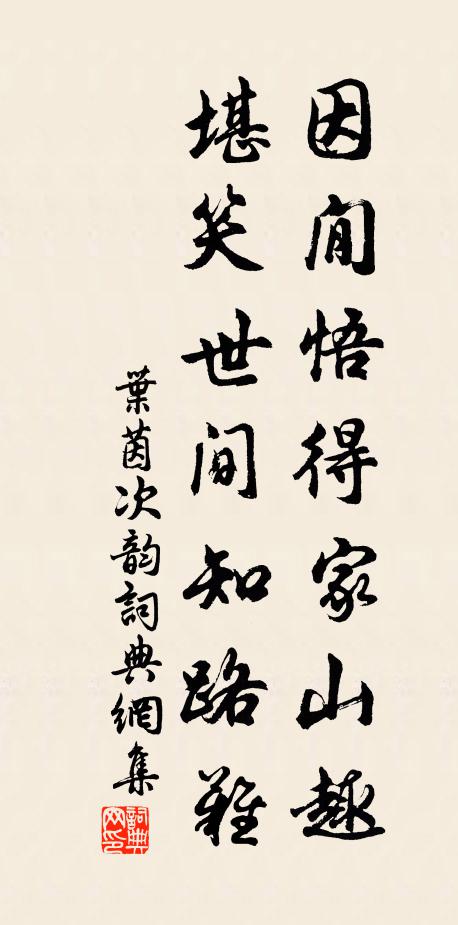 因閒悟得家山趣
堪笑世間知路難
葉茵次韵詞典網集
詞典網印